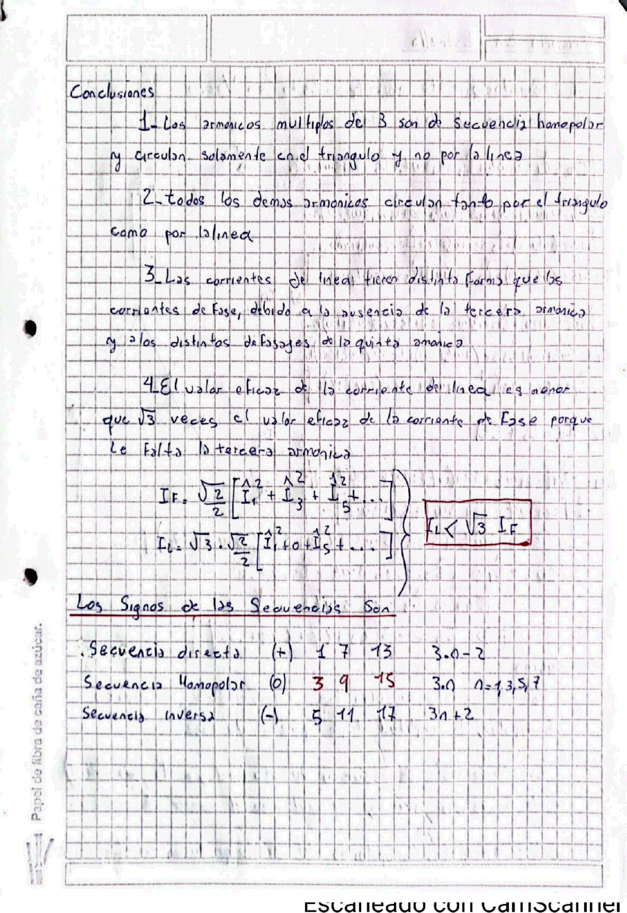 Conclusiones
1_ Los armonicos multiplos de 3 son de secuencia homopolar
y circulan solamente en el triangulo y no por la linea
2_ todos los demas armonicos circulan tanto por el triangulo
como por la linea
3_ Las corrientes de linea tienen distinta forma que las
corrientes de Fase, debido a la ausencia de la tercera armonica
y a los distintos defasajes de la quinta amonica
4_ El valor eficaz de la corriente de linea es menor
que √3 veces el valor eficaz de la corriente de Fase porque
le Falta la tercera armonica
IF = √2/2 [Î1² + Î3² + Î5² + ...]
IL = √3 · √2/2 [Î1² + 0 + Î5² + ...]
IL < √3 IF
Los Signos de las Secuencias Son
. Secuencia directa (+) 1 7 13 3.n-2
Secuencia Homopolar (0) 3 9 15 3.n n=1,3,5,7
Secuencia inversa (-) 5 11 17 3n+2
Papel de fibra de caña de azúcar.
Escaneado con CamScanner